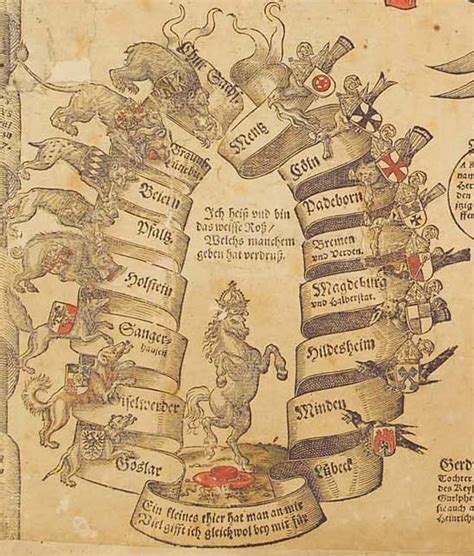 Chur Sachs
Braunsch.
Lüneburg
Beiern
Pfaltz
Holstein
Sanger-
hausen
Giselwerder
Goslar
Mentz
Cöln
Padeborn
Bremen
und Verden.
Magdeburg
und Halberstat.
Hildesheim
Minden
Lübeck
Ich heiß vnd bin
das weisse Roß/
Welchs manchem
geben hat verdruß.
Ein kleines thier hat man an mir
Viel gifft ich gleichwol bey mir führ
Gerd
Tochter
des Keys
Guelphe
sie auch a
Heinrich